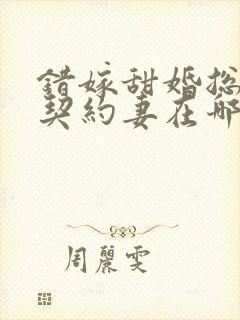 错嫁甜婚总
契約妻在哪
周麗雯